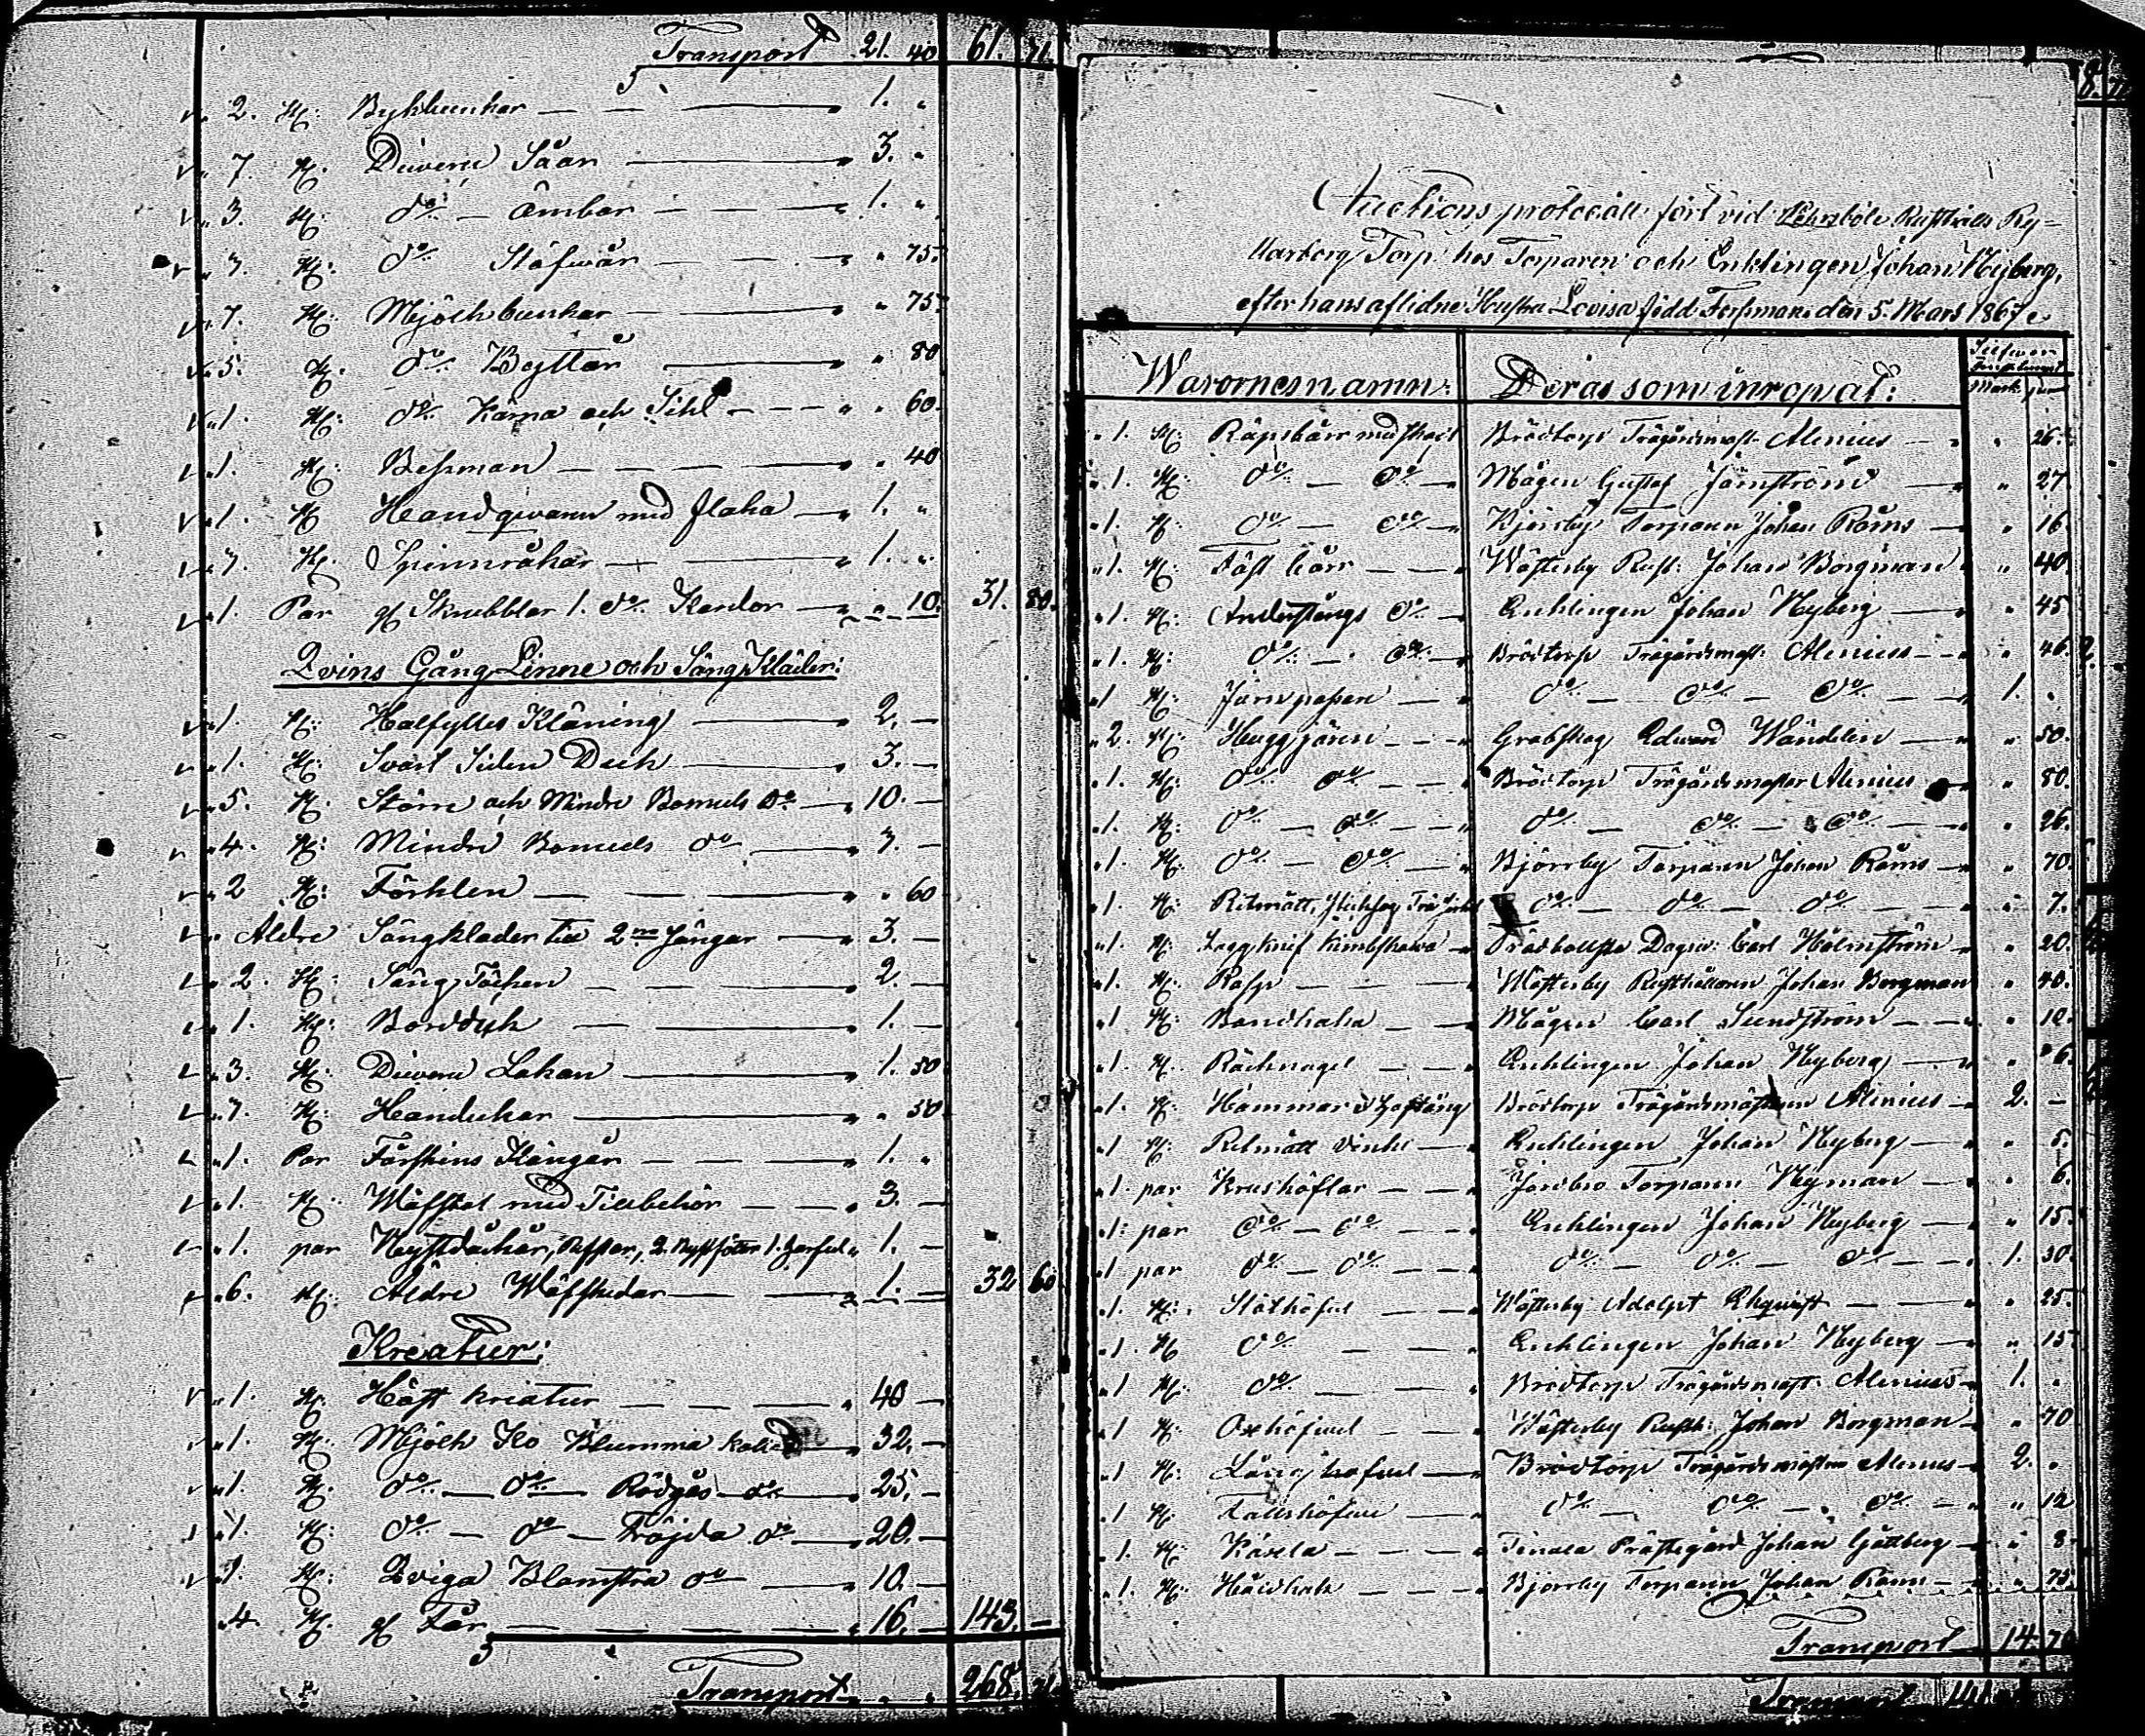 Transport 21. 40 61. 71.
2. St: Bykbunkar 1. "
7 St: Diverse Såar 3. "
3. St: do Ämbar 1. "
7. St: do Stäfwår " 75.
7. St: Mjölkbunkar " 75.
5. St: do Byttår " 80
1. St: do Kärna och Sihl " 60.
1. St: Bessman " 40
1. St Handqvarn med flaka 1. "
7. St: Spinnråkar 1. "
1. Par gl Skrubblar 1. do Kardor " 10. 31. 80.
Qvins Gång Linne och Säng Kläder:
1. St: Halfylles Kläning 2. —
1. St: Svart Siden Duk 3. —
5. St: Större och Mindre Bomuls do 10. —
4. St: Mindre Bomuls do 7. —
2 St: Förklen " 60
Äldre Sängkläder till 2ne Sängar 3. —
2. St: Säng Täcken 2. —
1. St: Bordduk 1. —
3. St: Diverse Lakan 1. 50
7. St: Handukar " 50
1. Par Fårskins Kängår 1. "
1. St: Wäfstol med Tillbehör 3. —
1. par Nystdåckår, 2 1. —
6. St: Äldre Wäfskedar 1. — 32 60
Kreatur:
1. St: Häst kreatur 40 —
1. St: Mjölk Ko Blumma 32. —
1. St: do — do — Rödgås do 25. —
1. St: do — do — Fröjda do 20. —
1. St: Qviga Blomstra do 10. —
4. St: gl Får 16. — 143. —
Transport 268. 71
Auctions protocoll fört vid Rusthålls Ny-
Torp hos Torparen och Enklingen Johan Nyberg,
efter hans aflidne Hustru Lovisa född Forsman den 5. Mars 1867.
Warornes namn: Deras som inropat: Mark
1. St: med Brödtorp Trägårdsmäst. Alenius " 26.
1. St: do — do Mågen Gustaf Jernström " 27
1. St: do — do Björsby Torparen Johan Råms " 16
1. St: Täft bårr Wästerby Rust: Johan Borgman " 40
1. St: do Enklingen Johan Nyberg " 45
1. St: do — do Brödtorp Trägårdsmäst: Alenius " 46.
1 St: Järn passen do — do — do 1. "
2. St: Huggjärn Grabskog Edvard Wändelin " 50.
1. St: do do Brödtorp Trägårdsmäster Alenius " 80.
1. St: do — do do — do — do " 26.
1. St: do — do Björsby Torparen Johan Råms " 70
1. St: Ritmått, do — do — do " 7.
1. St: Laggknif Dagsv: Carl Holmström " 20.
1. St: Rasp Wästerby Rusthållaren Johan Borgman " 40.
1 St: Bandhaka Mågen Carl Sundström " 10
1. St: Enklingen Johan Nyberg " 6.
1. St: Hammar Brödtorp Trägårdsmästaren Alenius 2. —
1 St: Ritmått Enklingen Johan Nyberg " 5.
1. par Krushöflar Torparen Nyman " 6.
1: par do — do Enklingen Johan Nyberg " 15.
1 par do — do do — do — do 1. 30.
1. St: Slåthöfvel Wästerby Adolft Ekqvist " 25.
1. St do Enklingen Johan Nyberg " 15
1 St: do Brödtorp Trägårdsmäst. Alenius 1. "
1 St: Oxhöfvel Wästerby Rusth: Johan Borgman " 70
1 St: Långhöfvel Brödtorp Trägårdsmästaren Alenius 2. "
1 St: Falshöfvel do — do — do " 12
1. St: Käxla Tenala Prästegård Johan Gottberg " 8
1. St: Björsby Torparen Johan Råms " 75.
Transport 14. 70
Transport